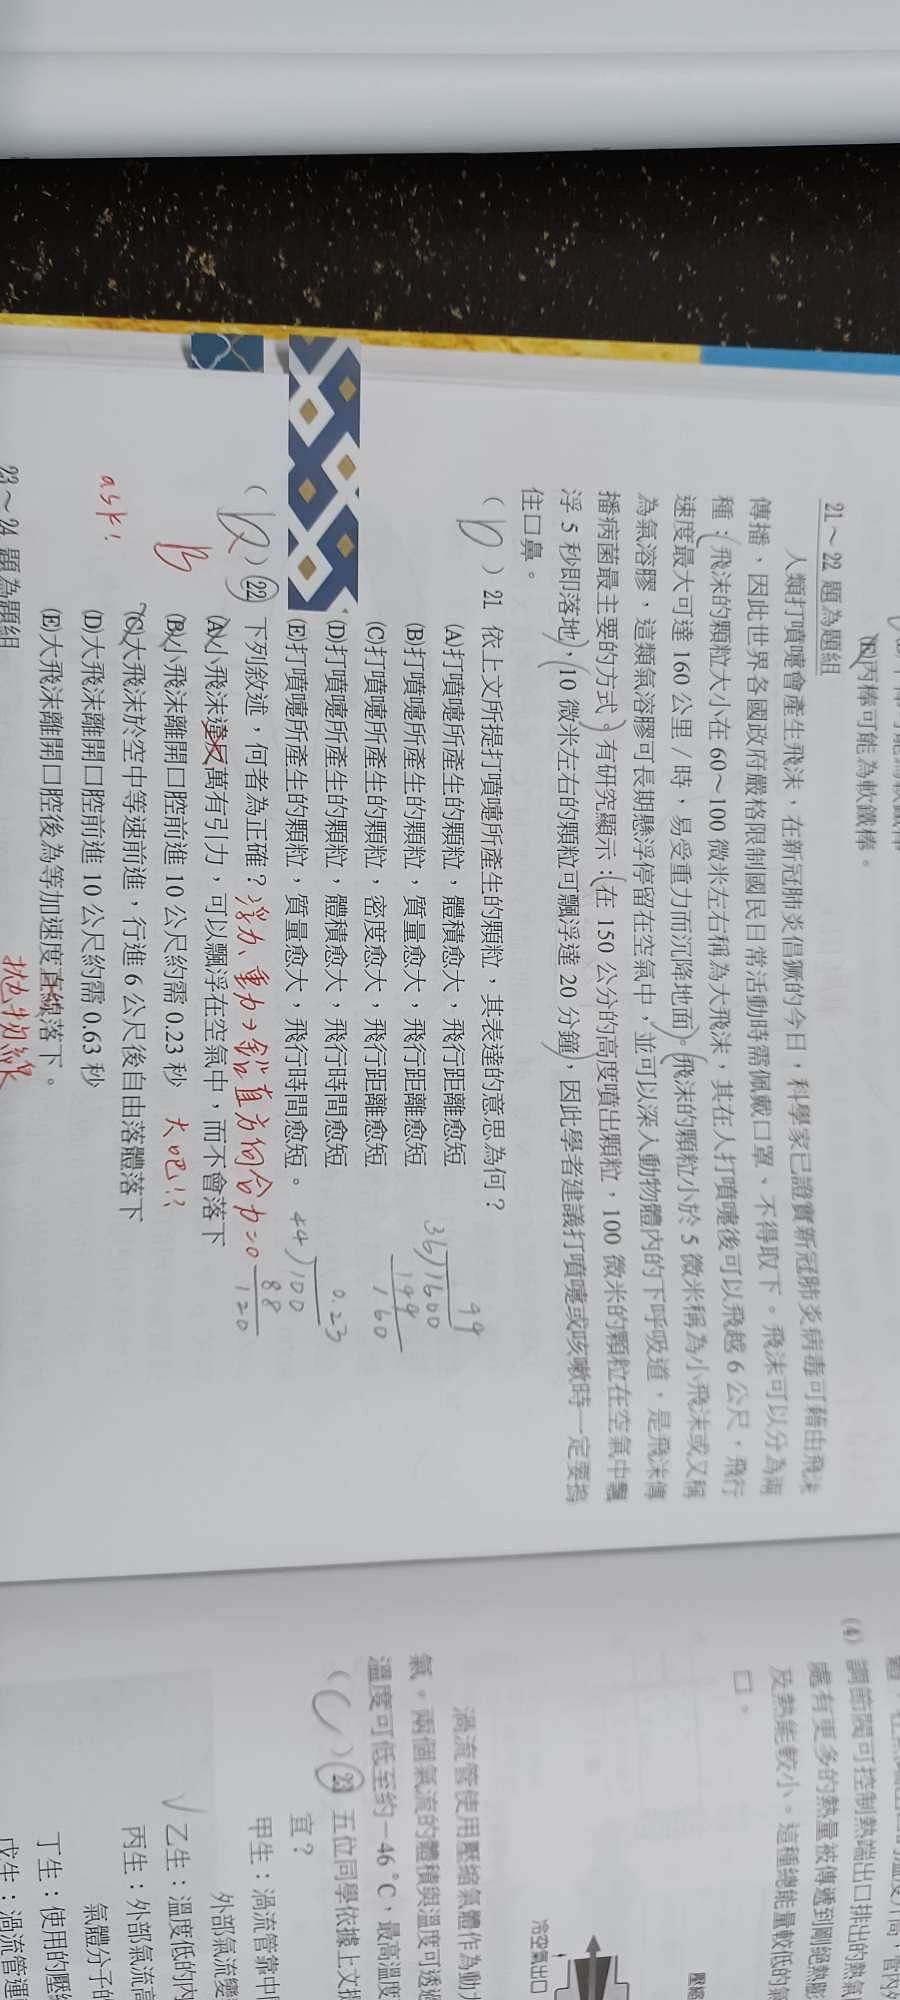 (E)丙棒可能為軟鐵棒。
21～22 題為題組
人類打噴嚏會產生飛沫，在新冠肺炎倡獗的今日，科學家已證實新冠肺炎病毒可藉由飛沫
傳播，因此世界各國政府嚴格限制國民日常活動時需佩戴口罩、不得取下。飛沫可以分為兩
種：飛沫的顆粒大小在 60～100 微米左右稱為大飛沫，其在人打噴嚏後可以飛越 6 公尺，飛行
速度最大可達 160 公里 / 時，易受重力而沉降地面。飛沫的顆粒小於 5 微米稱為小飛沫或又稱
為氣溶膠，這類氣溶膠可長期懸浮停留在空氣中，並可以深入動物體內的下呼吸道，是飛沫傳
播病菌最主要的方式。有研究顯示：在 150 公分的高度噴出顆粒，100 微米的顆粒在空氣中飄
浮 5 秒即落地，10 微米左右的顆粒可飄浮達 20 分鐘，因此學者建議打噴嚏或咳嗽時一定要摀
住口鼻。
(D) 21 依上文所提打噴嚏所產生的顆粒，其表達的意思為何？
(A)打噴嚏所產生的顆粒，體積愈大，飛行距離愈短
(B)打噴嚏所產生的顆粒，質量愈大，飛行距離愈短
(C)打噴嚏所產生的顆粒，密度愈大，飛行距離愈短
(D)打噴嚏所產生的顆粒，體積愈大，飛行時間愈短
(E)打噴嚏所產生的顆粒，質量愈大，飛行時間愈短。
99
36)1600
144
160
0.23
44)100
88
120
22 下列敘述，何者為正確？浮力、重力→鉛直方向合力=0
(A)小飛沫違反萬有引力，可以飄浮在空氣中，而不會落下
B
(B)小飛沫離開口腔前進 10 公尺約需 0.23 秒 大吧!?
(C)大飛沫於空中等速前進，行進 6 公尺後自由落體落下
ask!
(D)大飛沫離開口腔前進 10 公尺約需 0.63 秒
(E)大飛沫離開口腔後為等加速度直線落下。
拋物線
23～24 題為題組
(4) 調節閥可控制熱端出口排出的熱氣
處有更多的熱量被傳遞到剛絕熱膨
及熱能較小。這種總能量較低的氣
口。
壓縮
冷空氣出口
渦流管使用壓縮氣體作為動力
氣。兩個氣流的體積與溫度可透過
溫度可低至約－46˚C，最高溫度
(C) 23 五位同學依據上文提
宜？
甲生：渦流管靠中間
外部氣流變
乙生：溫度低的內
丙生：外部氣流高
氣體分子的
丁生：使用的壓縮
戊生：渦流管運